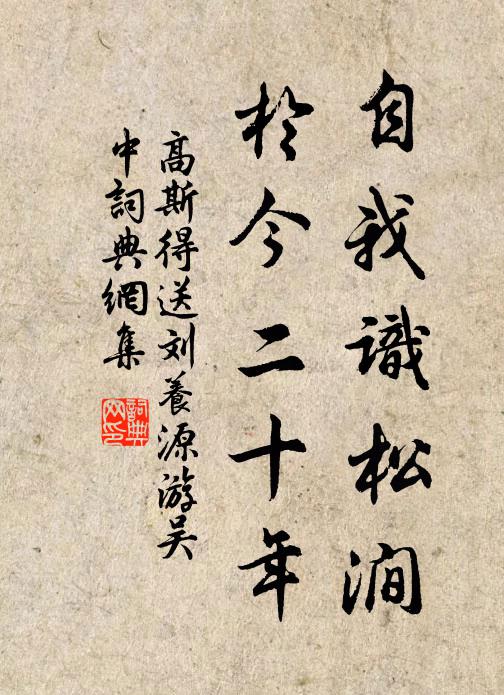 自我識松澗
於今二十年
高斯得送刘養源游吴
中詞典網集
詞典
网印